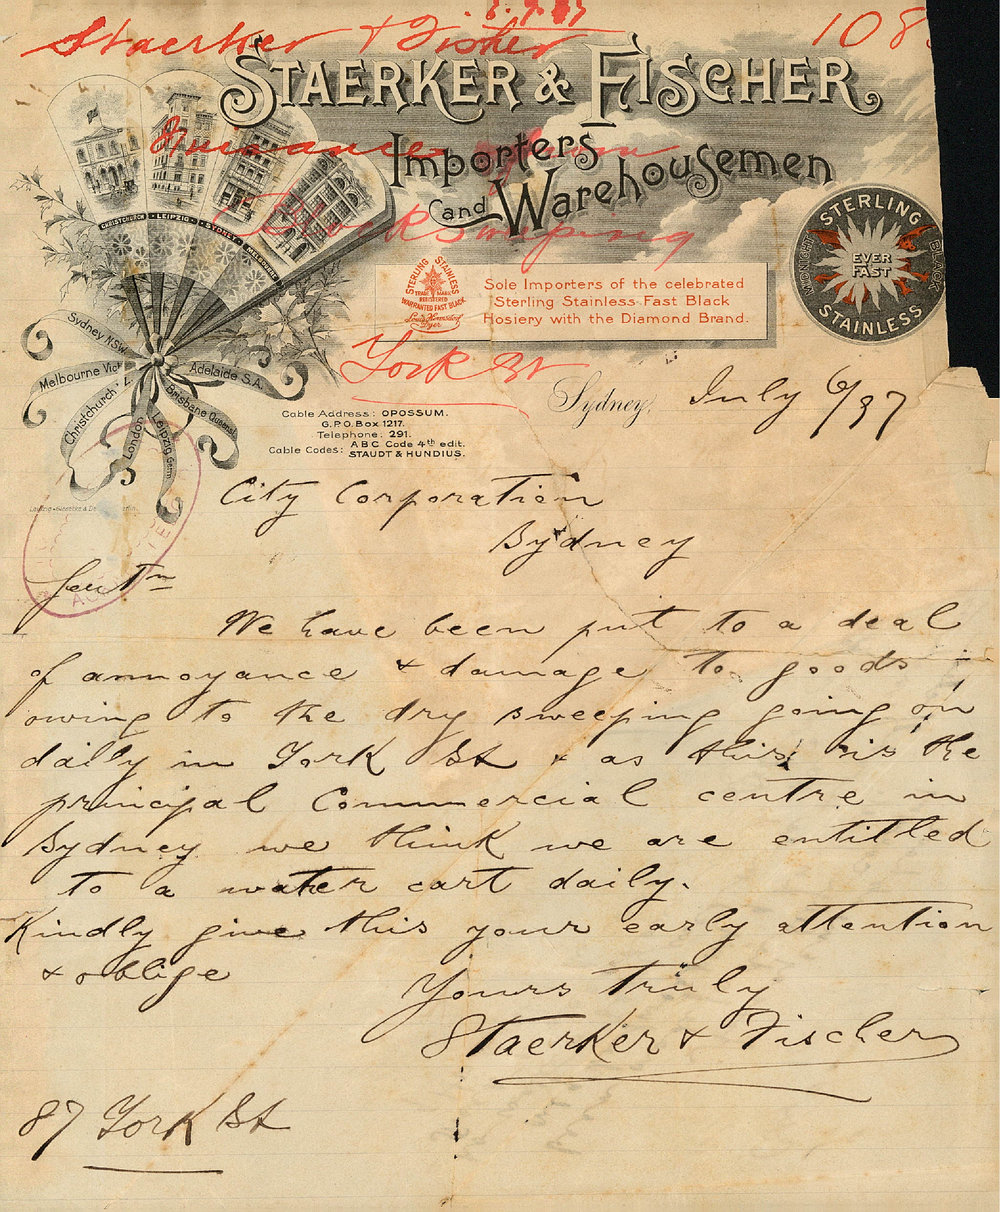 8.7.97
Staerker & Fisher 108
STAERKER & FISCHER
Nuisance from
Importers
and Warehousemen
Block Sweeping
York St
CHRISTCHURCH · LEIPZIG · SYDNEY · MELBOURNE
STERLING STAINLESS
TRADE MARK
REGISTERED
WARRANTED FAST BLACK
Louis Hermsdorf
Dyer
Sole Importers of the celebrated
Sterling Stainless Fast Black
Hosiery with the Diamond Brand.
STERLING
MIDNIGHT
EVER
FAST
BLACK
STAINLESS
Sydney NSW.
Melbourne Vict
Christchurch
London
Leipzig Germ
Brisbane Queensl
Adelaide S.A.
Cable Address: OPOSSUM.
G.P.O. Box 1217.
Telephone: 291.
Cable Codes: A B C Code 4th edit.
STAUDT & HUNDIUS.
Sydney, July 6/97
City Corporation
Sydney
Gentn
We have been put to a deal
of annoyance & damage to goods
owing to the dry sweeping going on
daily in York St & as this is the
principal Commercial centre in
Sydney we think we are entitled
to a water cart daily.
Kindly give this your early attention
& oblige
Yours truly
Staerker & Fischer
87 York St